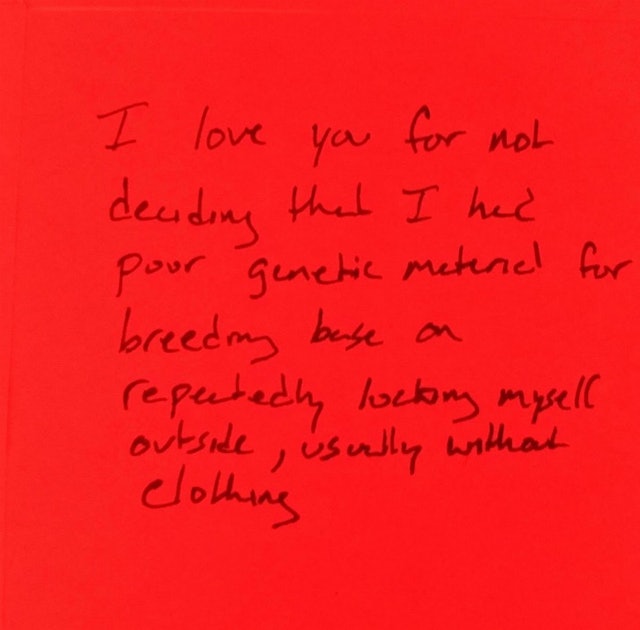 I love you for not
deciding that I had
poor genetic material for
breeding base on
repeatedly locking myself
outside, usually without
clothing